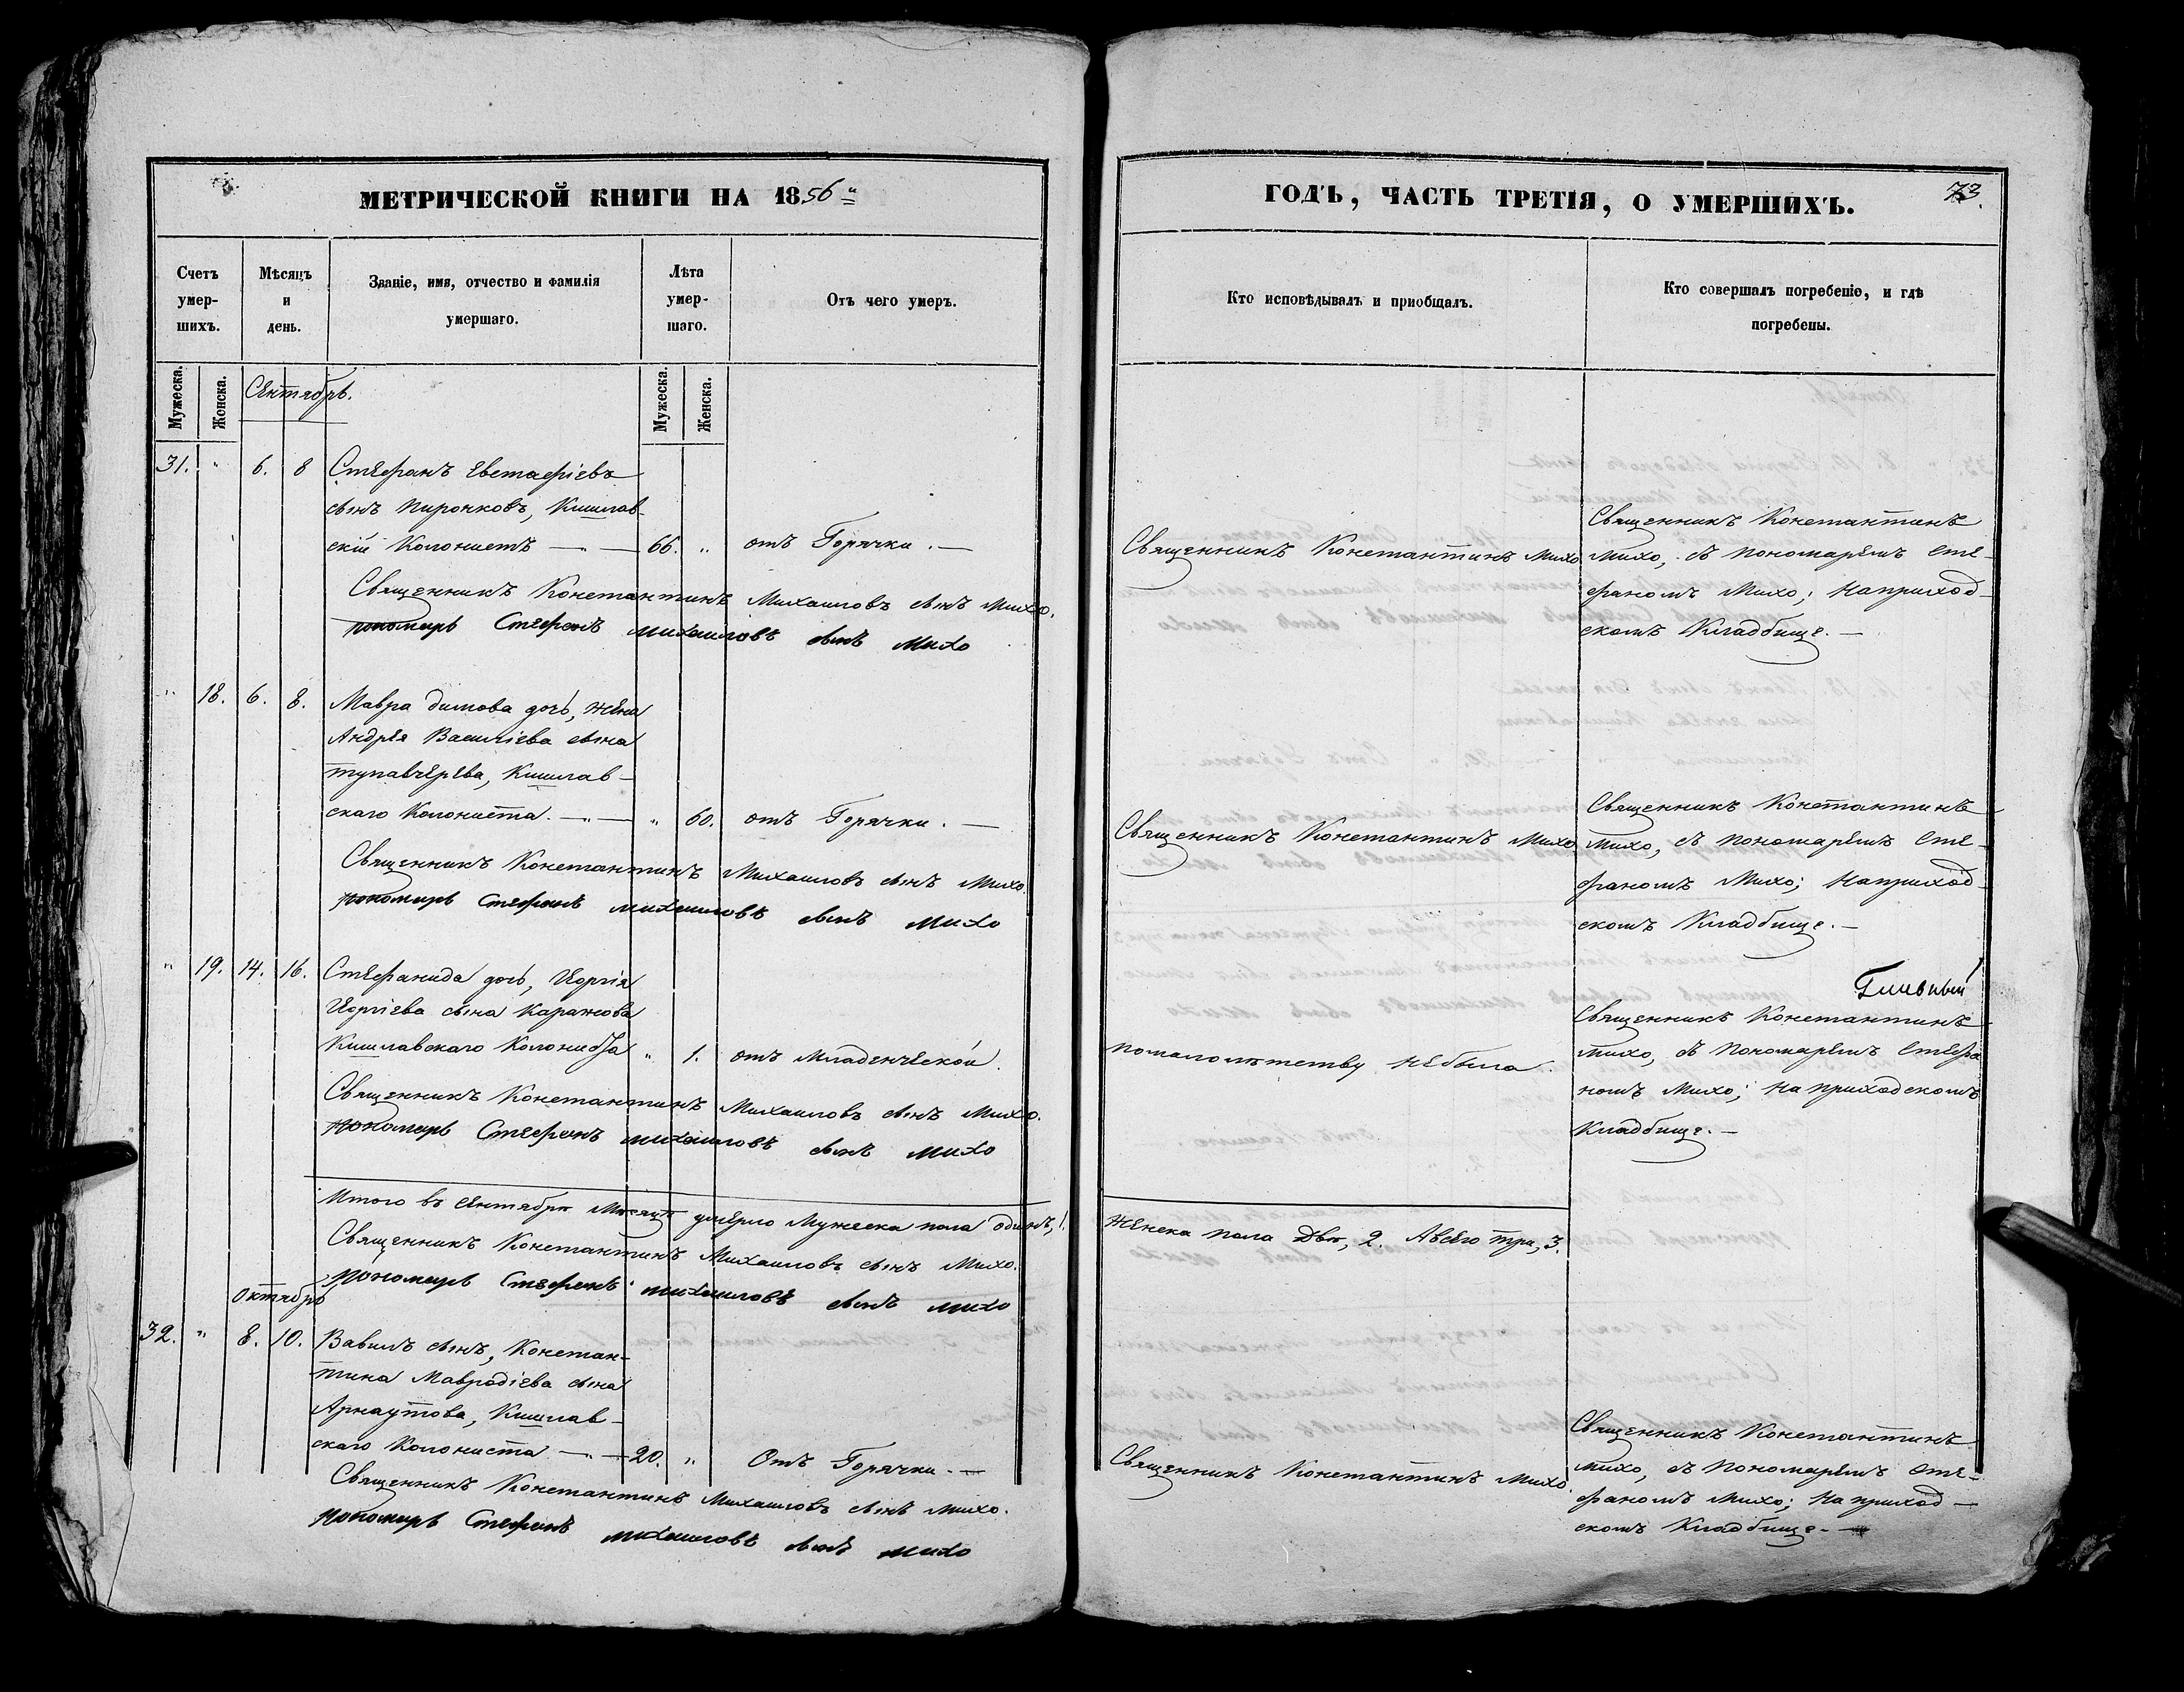 МЕТРИЧЕСКОЙ КНИГИ НА 1856й
Счетъ умер-шихъ.
Мѣсяцъ и день.
Званіе, имя, отчество и фамилія умершаго.
Лѣта умер-шаго.
Отъ чего умеръ.
Мужеска.
Женска.
Мужеска.
Женска.
Сентябрь.
31. " 6. 8 Стефанъ Евстафіевъ
сынъ Пирожковъ, Кишлав-
скій Колонистъ — 66. " отъ Горячки. —
Священникъ Константинъ Михаиловъ сынъ Михо.
пономарь Стефанъ михаиловъ сынъ Михо
" 18. 6. 8. Мавра Димова дочь, жена
Андрея Василіева сына
тупавчерева, Кишлав-
скаго Колониста. — " — " 60. отъ Горячки. —
Священникъ Константинъ Михаиловъ сынъ Михо.
пономарь Стефанъ михаиловъ сынъ Михо
" 19. 14. 16. Стефанида дочь, Георгія
Георгіева сына Каражова
Кишлавскаго Колониста " 1. отъ Младенческой.
Священникъ Константинъ Михаиловъ сынъ Михо.
Пономарь Стефанъ михаиловъ сынъ Михо
Итого въ Сентябрѣ Мѣсяцѣ умерло Мужеска пола одинъ, 1.
Священникъ Константинъ Михаиловъ сынъ Михо.
Пономарь Стефанъ михаиловъ сынъ михо
Октябрь
32. " 8. 10. Вавилъ сынъ, Констан-
тина Мавродіева сына
Арнаутова, Кишлав-
скаго Колониста — " — 20. " Отъ Горячки. —
Священникъ Константинъ Михаиловъ сынъ Михо.
Пономарь Стефанъ михаиловъ сынъ михо
ГОДЪ, ЧАСТЬ ТРЕТІЯ, О УМЕРШИХЪ.
73.
Кто исповѣдывалъ и пріобщалъ.
Кто совершалъ погребеніе, и гдѣ погребены.
Священникъ Константинъ Михо
Священникъ Константинъ
Михо, съ Пономаремъ Сте-
фаномъ Михо; На приход-
скомъ Кладбище. —
Священникъ Константинъ Михо
Священникъ Константинъ
Михо, съ Пономаремъ Сте-
фаномъ Михо; На приход-
скомъ Кладбище. —
По малолѣтству небыла.
Священникъ Константинъ
Михо, съ Пономаремъ Стефа
номъ Михо; На приходскомъ
Кладбище. —
Женска пола двѣ, 2. А всего три, 3.
Священникъ Константинъ Михо.
Священникъ Константинъ
Михо, съ Пономаремъ Сте-
фаномъ Михо; На приход-
скомъ Кладбище. —